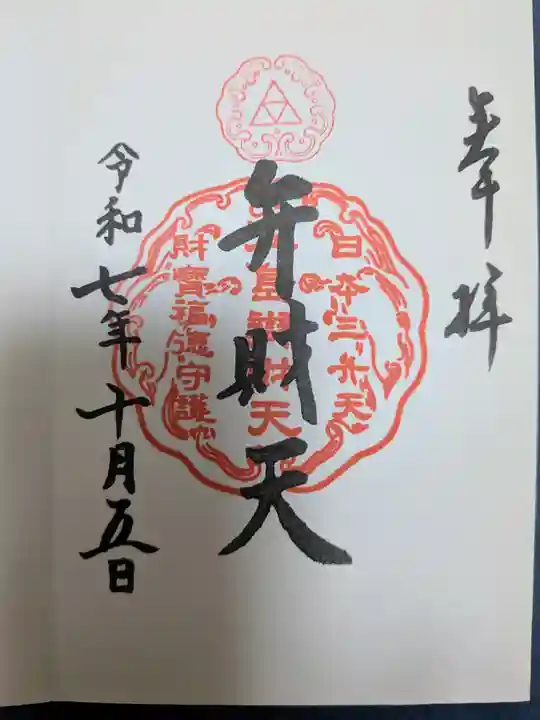 奉拝
弁財天
日本三弁天
島辨財天
財寶福徳守護
令和七年十月五日